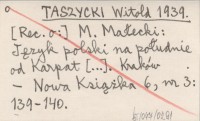 TASZYCKI Witold 1939.
[Rec. o:] M. Małecki:
Język polski na południe
od Karpat [...]. Kraków
- Nowa Książka 6, nr 3:
139-140.